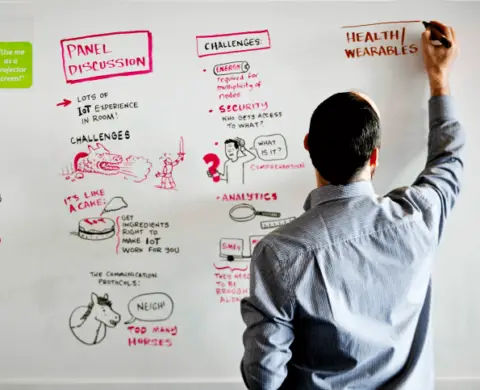 "Use me
as a
projector
screen!"
PANEL
DISCUSSION
LOTS OF
IoT EXPERIENCE
IN ROOM!
CHALLENGES
IT'S LIKE
A CAKE:
GET
INGREDIENTS
RIGHT TO
MAKE IoT
WORK FOR YOU
THE COMMUNICATION
PROTOCOLS:
NEIGH!
TOO MANY
HORSES
CHALLENGES:
ENERGY
required for
multiplicity of
nodes
SECURITY
WHO GETS ACCESS
TO WHAT?
WHAT
IS IT?
?
COMPREHENSION
ANALYTICS
THEY NEED
TO BE
BROUGHT
ALONG
HEALTH/
WEARABLES